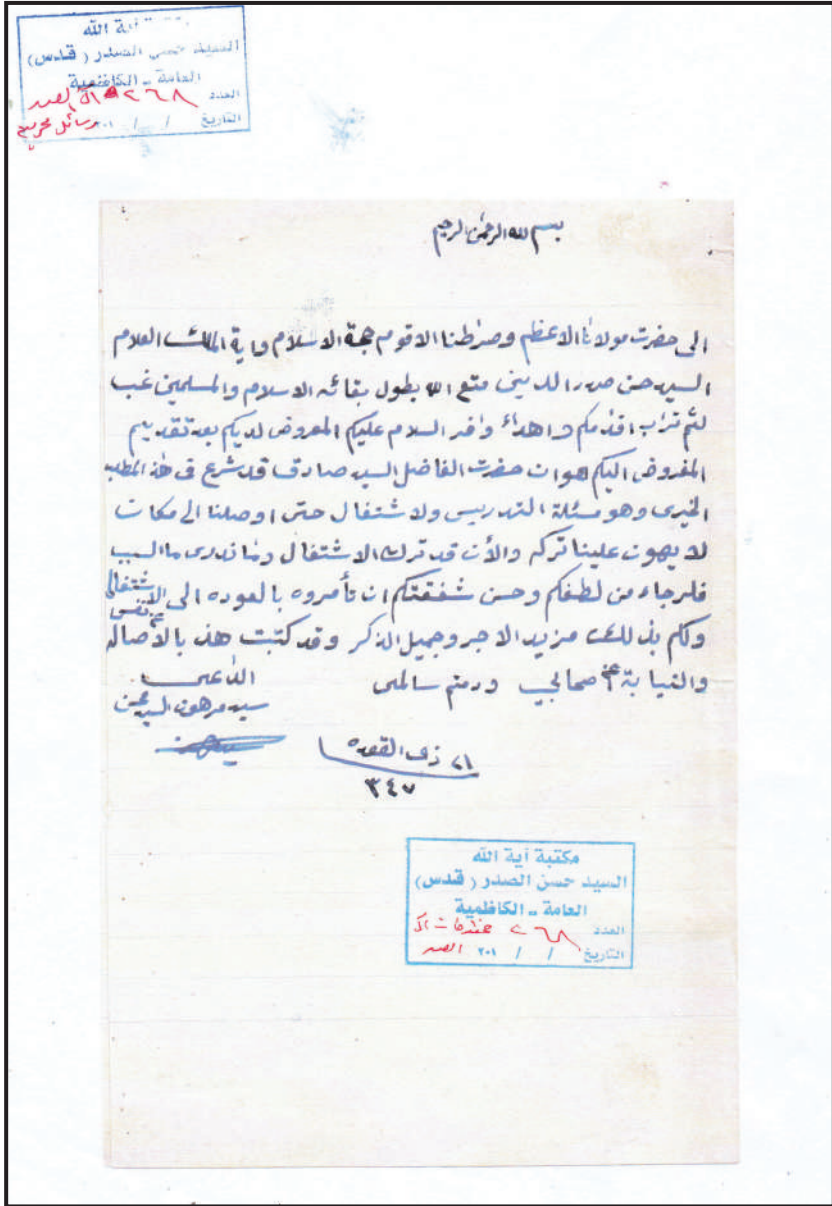 مكتبة آية الله
السيد حسن الصدر (قدس)
العامة - الكاظمية
العدد ٢٦٨ الصدر
التاريخ / / ٢٠١ رسائل
بسم الله الرحمن الرحيم
الى حضرت مولانا الاعظم وصراطنا الاقوم حجة الاسلام واية الملك العلام
السيد حسن صدر الدين متع الله بطول بقائه الاسلام والمسلمين غب
لثم تراب اقدامكم واهداء وافر السلام عليكم المعروض لديكم بعد تقديم
المفروض اليكم هو ان حضرت الفاضل السيد صادق قد شرع في هذ المطلب
الخيري وهو مسئلة التدريس ولاشتغال حتى اوصلنا الى مكان
لا يهون علينا تركه والأن قد ترك الاشتغال وما ندري ما السبب
فلرجاء من لطفكم وحسن شفقتكم ان تأمروه بالعوده الى الاشتغال
ولكم بذلك مزيد الاجر وجميل الذكر وقد كتبت هذ بالأصاله عن نفسي
والنيابة عن اصحابي ودمتم سالمين الداعي
سيد مرهون السيد محسن
٢١ ذي القعده
٣٤٧
مكتبة آية الله
السيد حسن الصدر (قدس)
العامة - الكاظمية
العدد ٢٦٨
التاريخ / / ٢٠١ الصدر